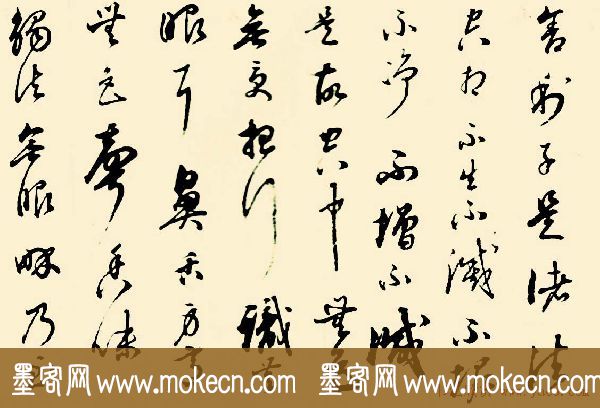 舍利子是諸法
空相不生不滅不垢
不淨不增不減
是故空中無色
無受想行識無
眼耳鼻舌身意
無色聲香味
觸法無眼界乃至
墨客网 www.mokecn.com 墨客网 www.mokecn.com